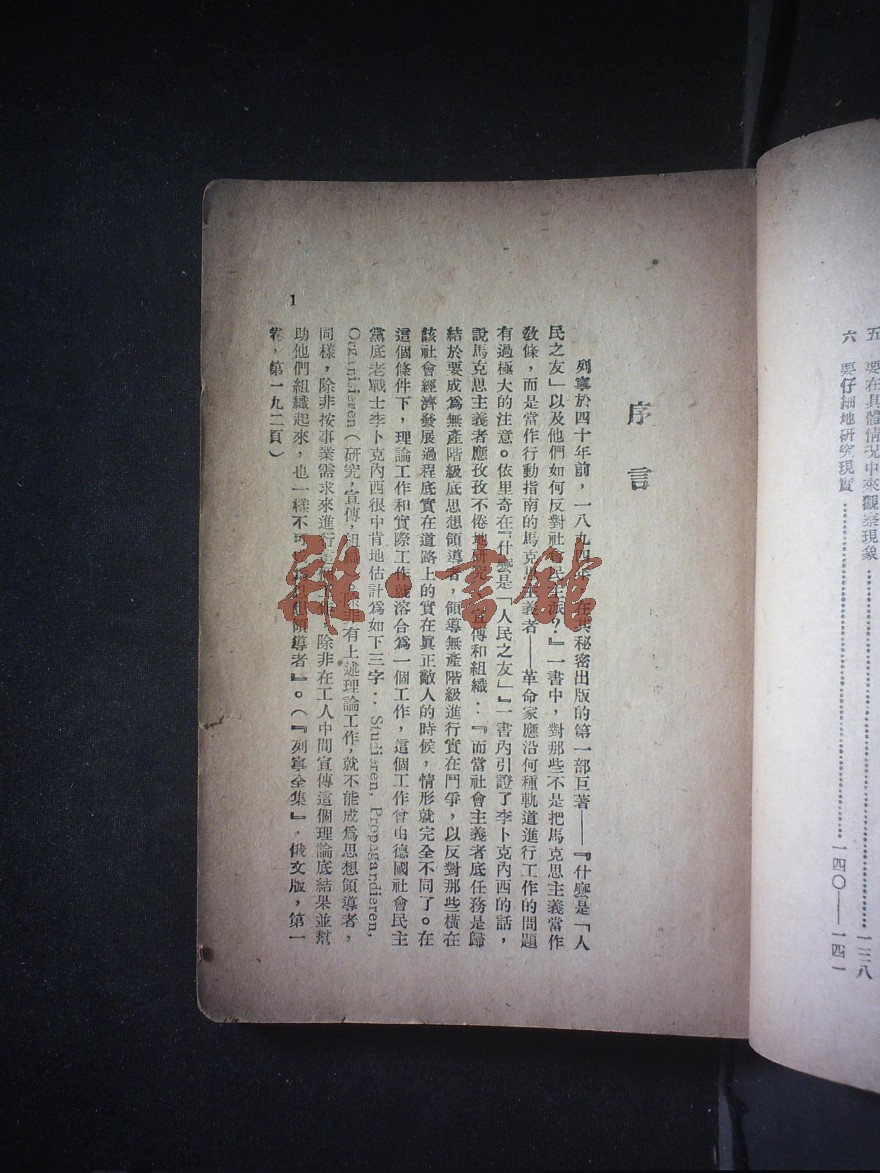 五　要在具體情況中來觀察現象……一三八
六　要仔細地研究現實……一四〇——一四一
序言
列寧於四十年前，一八九四年，在其秘密出版的第一部巨著——『什麼是「人
民之友」以及他們如何反對社會民主派？』一書中，對那些不是把馬克思主義當作
敎條，而是當作行動指南的馬克思主義者——革命家應沿何種軌道進行工作的問題
有過極大的注意。依里奇在『什麼是「人民之友」』一書內引證了李卜克內西的話，
說馬克思主義者應孜孜不倦地研究，宣傳和組織：『而當社會主義者底任務是歸
結於要成爲無產階級底思想領導者，領導無產階級進行實在鬥爭，以反對那些橫在
該社會經濟發展過程底實在道路上的實在眞正敵人的時候，情形就完全不同了。在
這個條件下，理論工作和實際工作就溶合爲一個工作，這個工作會由德國社會民主
黨底老戰士李卜克內西很中肯地估計爲如下三字：Studieren, Propagandieren,
Organisieren（研究，宣傳，組織）。除非有上述理論工作，就不能成爲思想領導者，
同樣，除非按事業需求來進行這個工作，除非在工人中間宣傳這個理論底結果並幫
助他們組織起來，也一樣不可成爲思想領導者』。（『列寧全集』，俄文版，第一
卷，第一九二頁）
1
書館